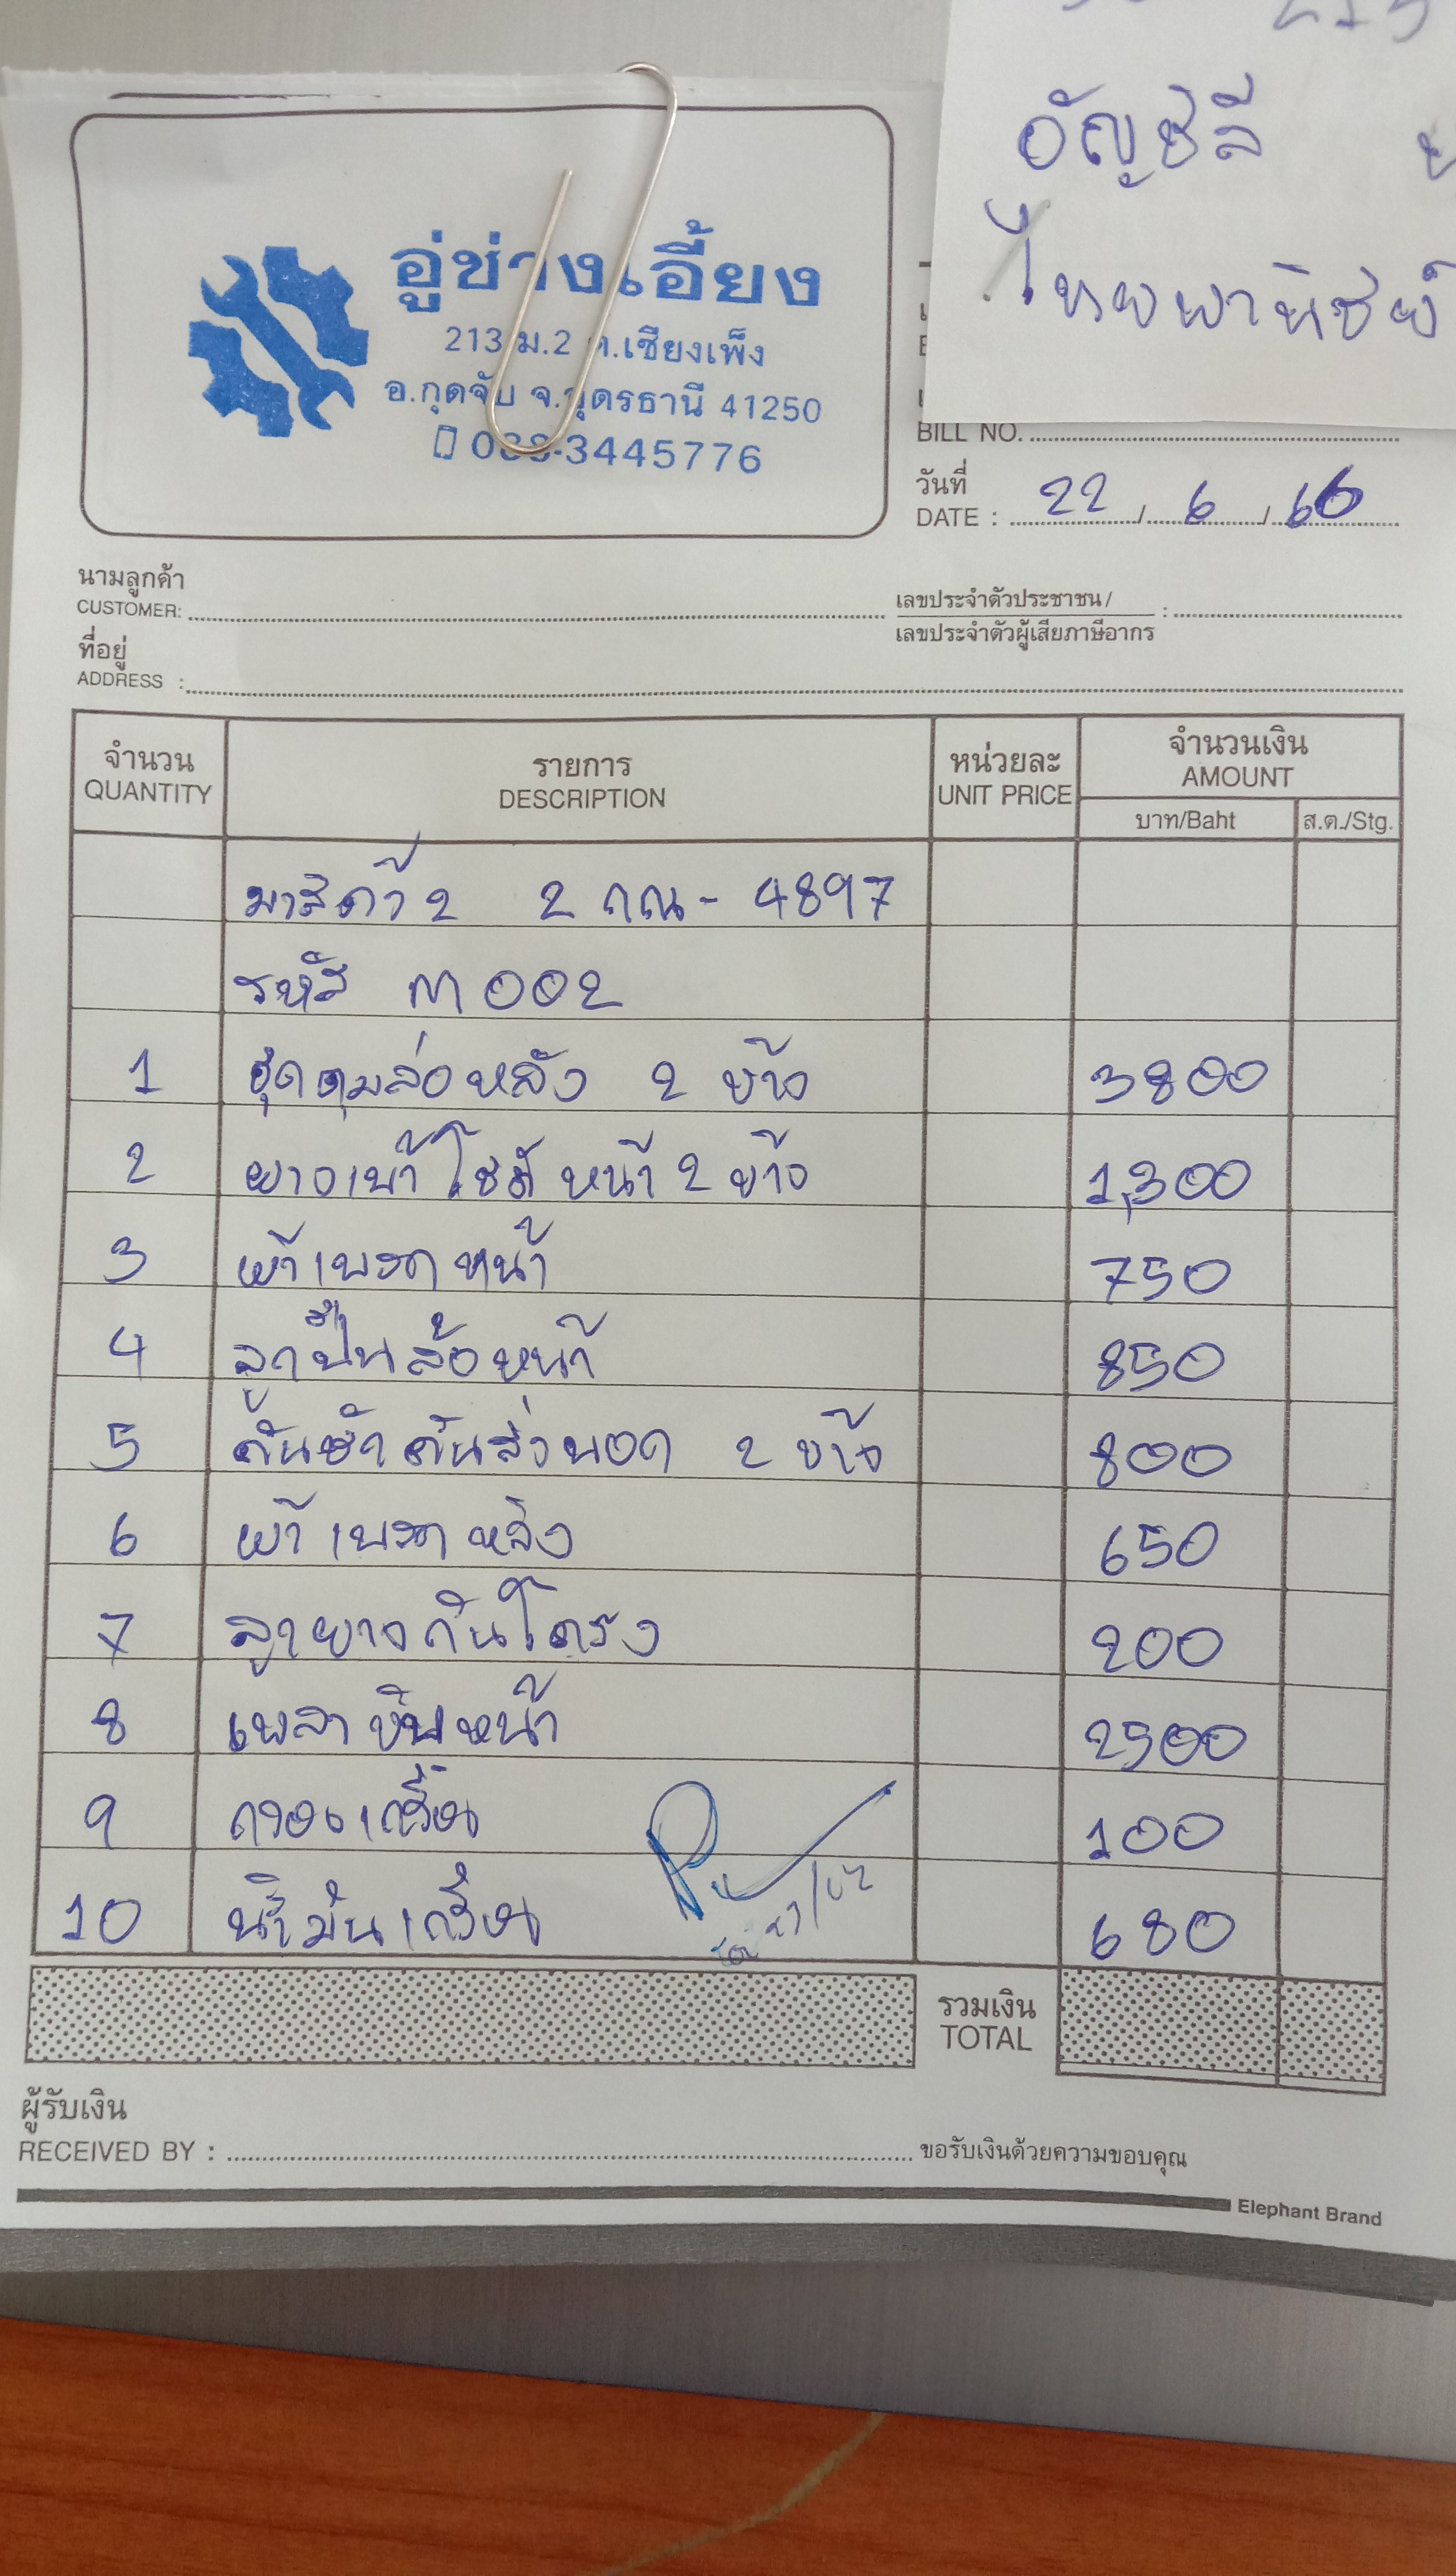 อัญชลี
ไทยพาณิชย์
อู่ช่างเอี้ยง
213 ม.2 ต.เชียงเพ็ง
อ.กุดจับ จ.อุดรธานี 41250
3445776
BILL NO.
วันที่
DATE : 22 / 6 / 66
นามลูกค้า
CUSTOMER:
เลขประจำตัวประชาชน/
เลขประจำตัวผู้เสียภาษีอากร :
ที่อยู่
ADDRESS :
จำนวน รายการ หน่วยละ จำนวนเงิน
QUANTITY DESCRIPTION UNIT PRICE AMOUNT
บาท/Baht ส.ต./Stg.
มาสด้า 2 2 กณ - 4897
รหัส M002
1 ชุดดุมล้อหลัง 2 ข้าง 3800
2 ยางเบ้าโช๊คหน้า 2 ข้าง 1,300
3 ผ้าเบรคหน้า 750
4 ลูกปืนล้อหน้า 850
5 คันชักคันส่งนอก 2 ข้าง 800
6 ผ้าเบรคหลัง 650
7 ลูกยางกันโครง 200
8 เพลาขับหน้า 2500
9 กรองเครื่อง 100
10 น้ำมันเครื่อง 680
รวมเงิน
TOTAL
ผู้รับเงิน
RECEIVED BY :
ขอรับเงินด้วยความขอบคุณ
Elephant Brand